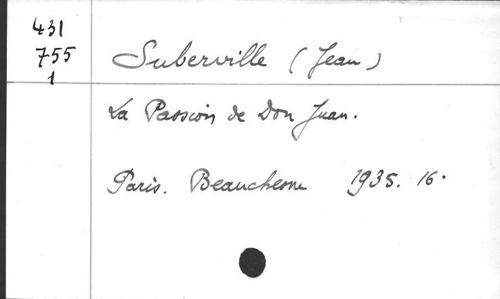 431
755
1
Suberville (Jean)
La Passion de Don Juan.
Paris. Beauchesne 1935. 16°